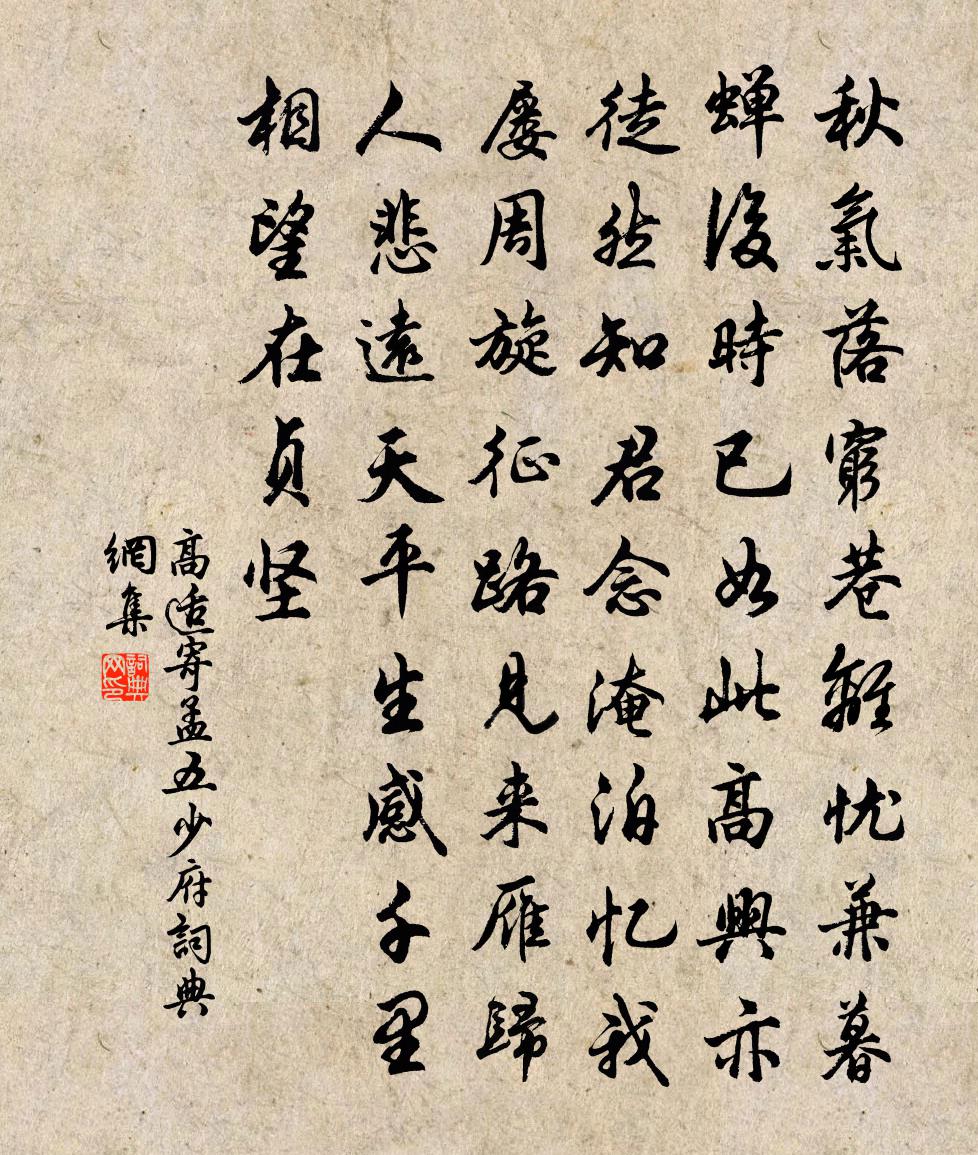 秋氣落窮巷離忧兼暮
蝉後時已如此高興亦
徒然知君念淹泊忆我
屡周旋征路見来雁歸
人悲遠天平生感千里
相望在貞坚
高适寄孟五少府詞典
網集
詞典网印